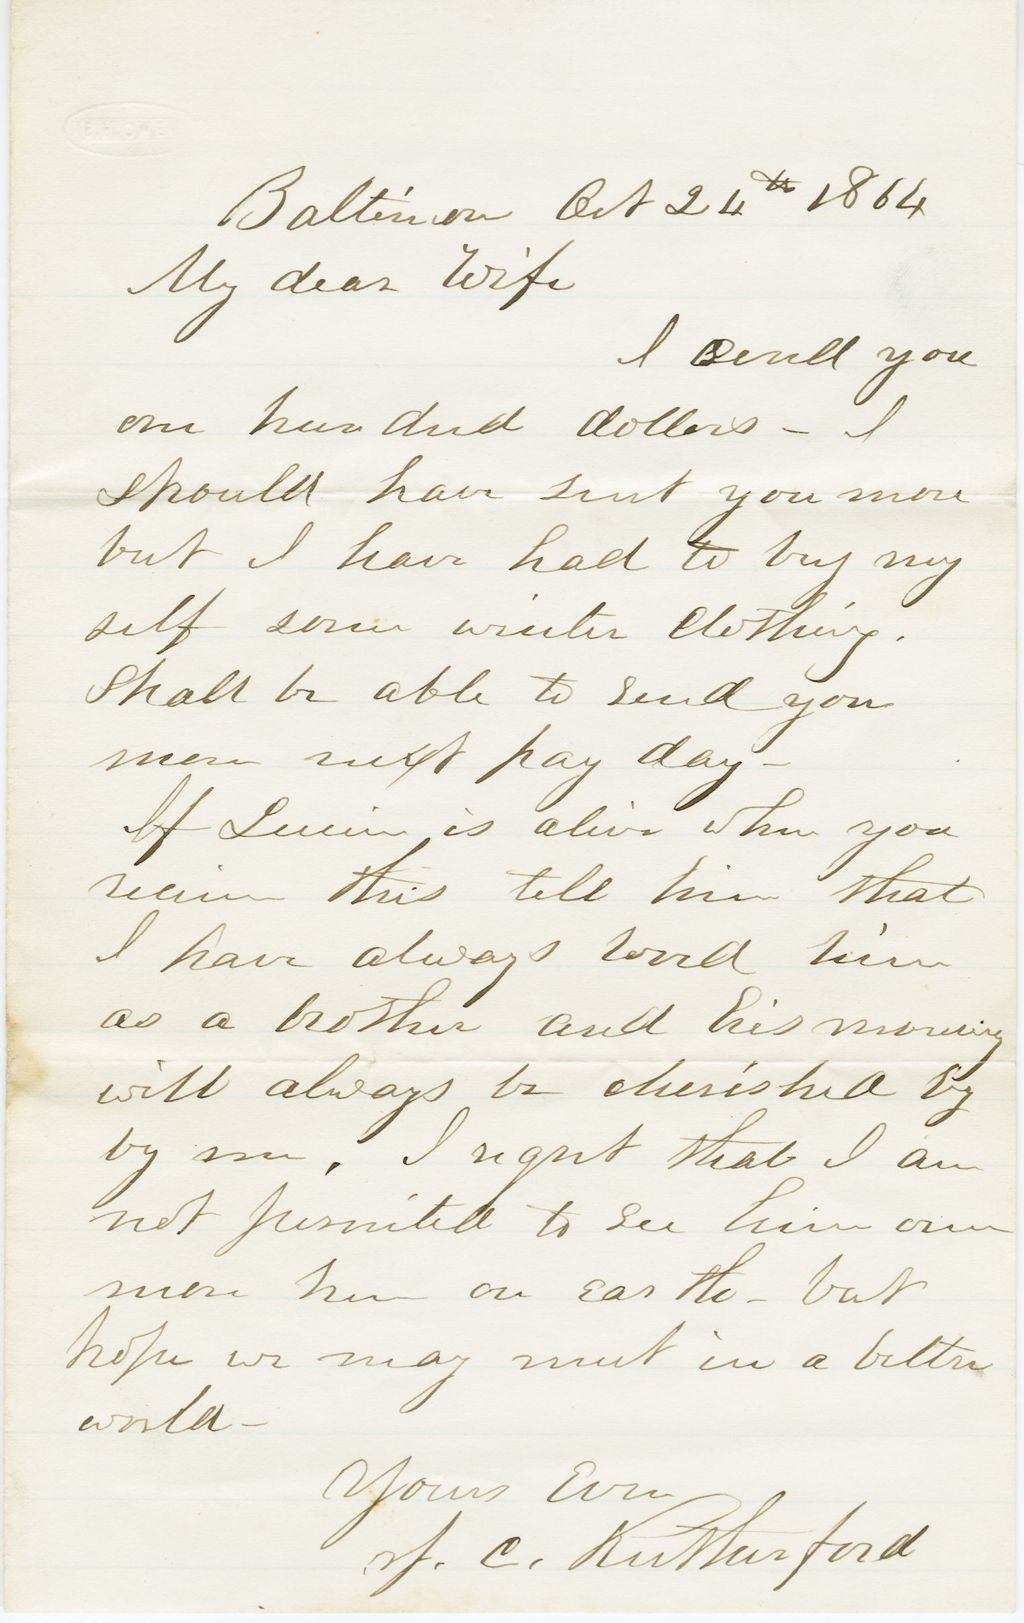 Baltimore Oct 24th 1864
My dear Wife
I send you
one hundred dollars - I
should have sent you more
but I have had to buy my
self some winter clothing.
Shall be able to send you
more next pay day -
If Lucien is alive when you
recieve this tell him that
I have always loved him
as a brother and his memory
will always be cherished by
by me. I regret that I am
not permited to see him once
more here on earth - but
hope we may meet in a better
world -
Yours Ever
J. C. Rutherford